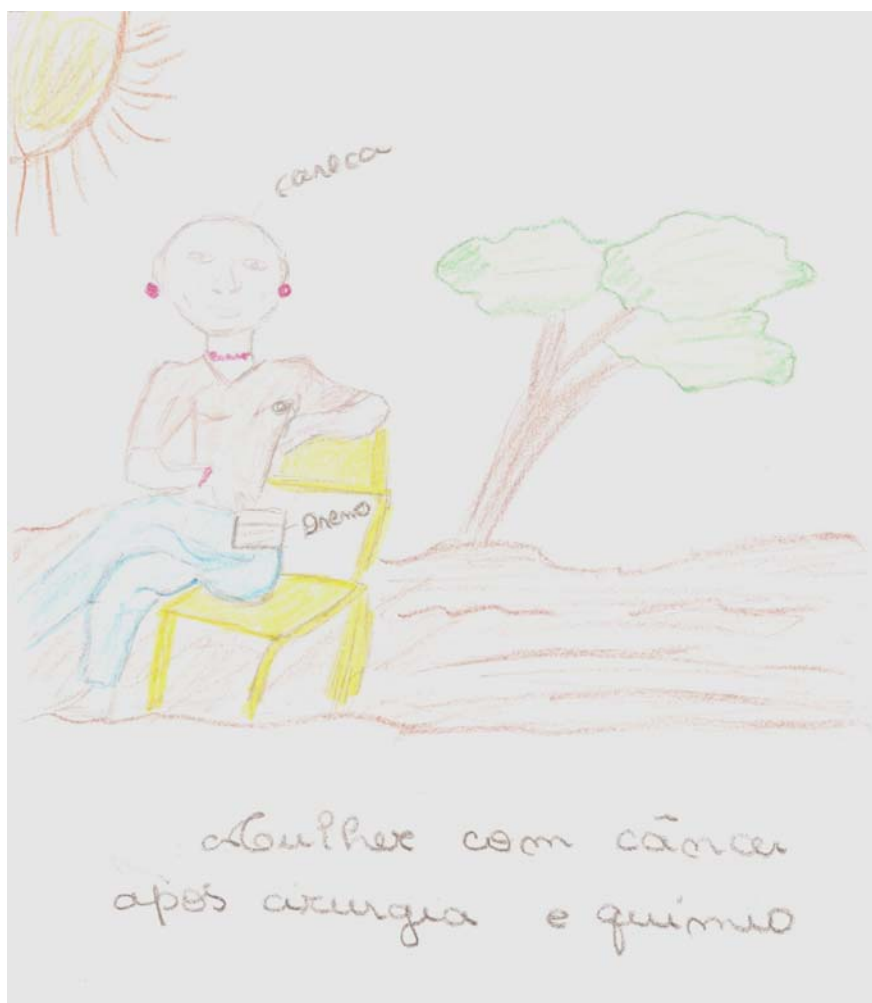 careca
Dreno
Mulher com câncer
após cirurgia e químio